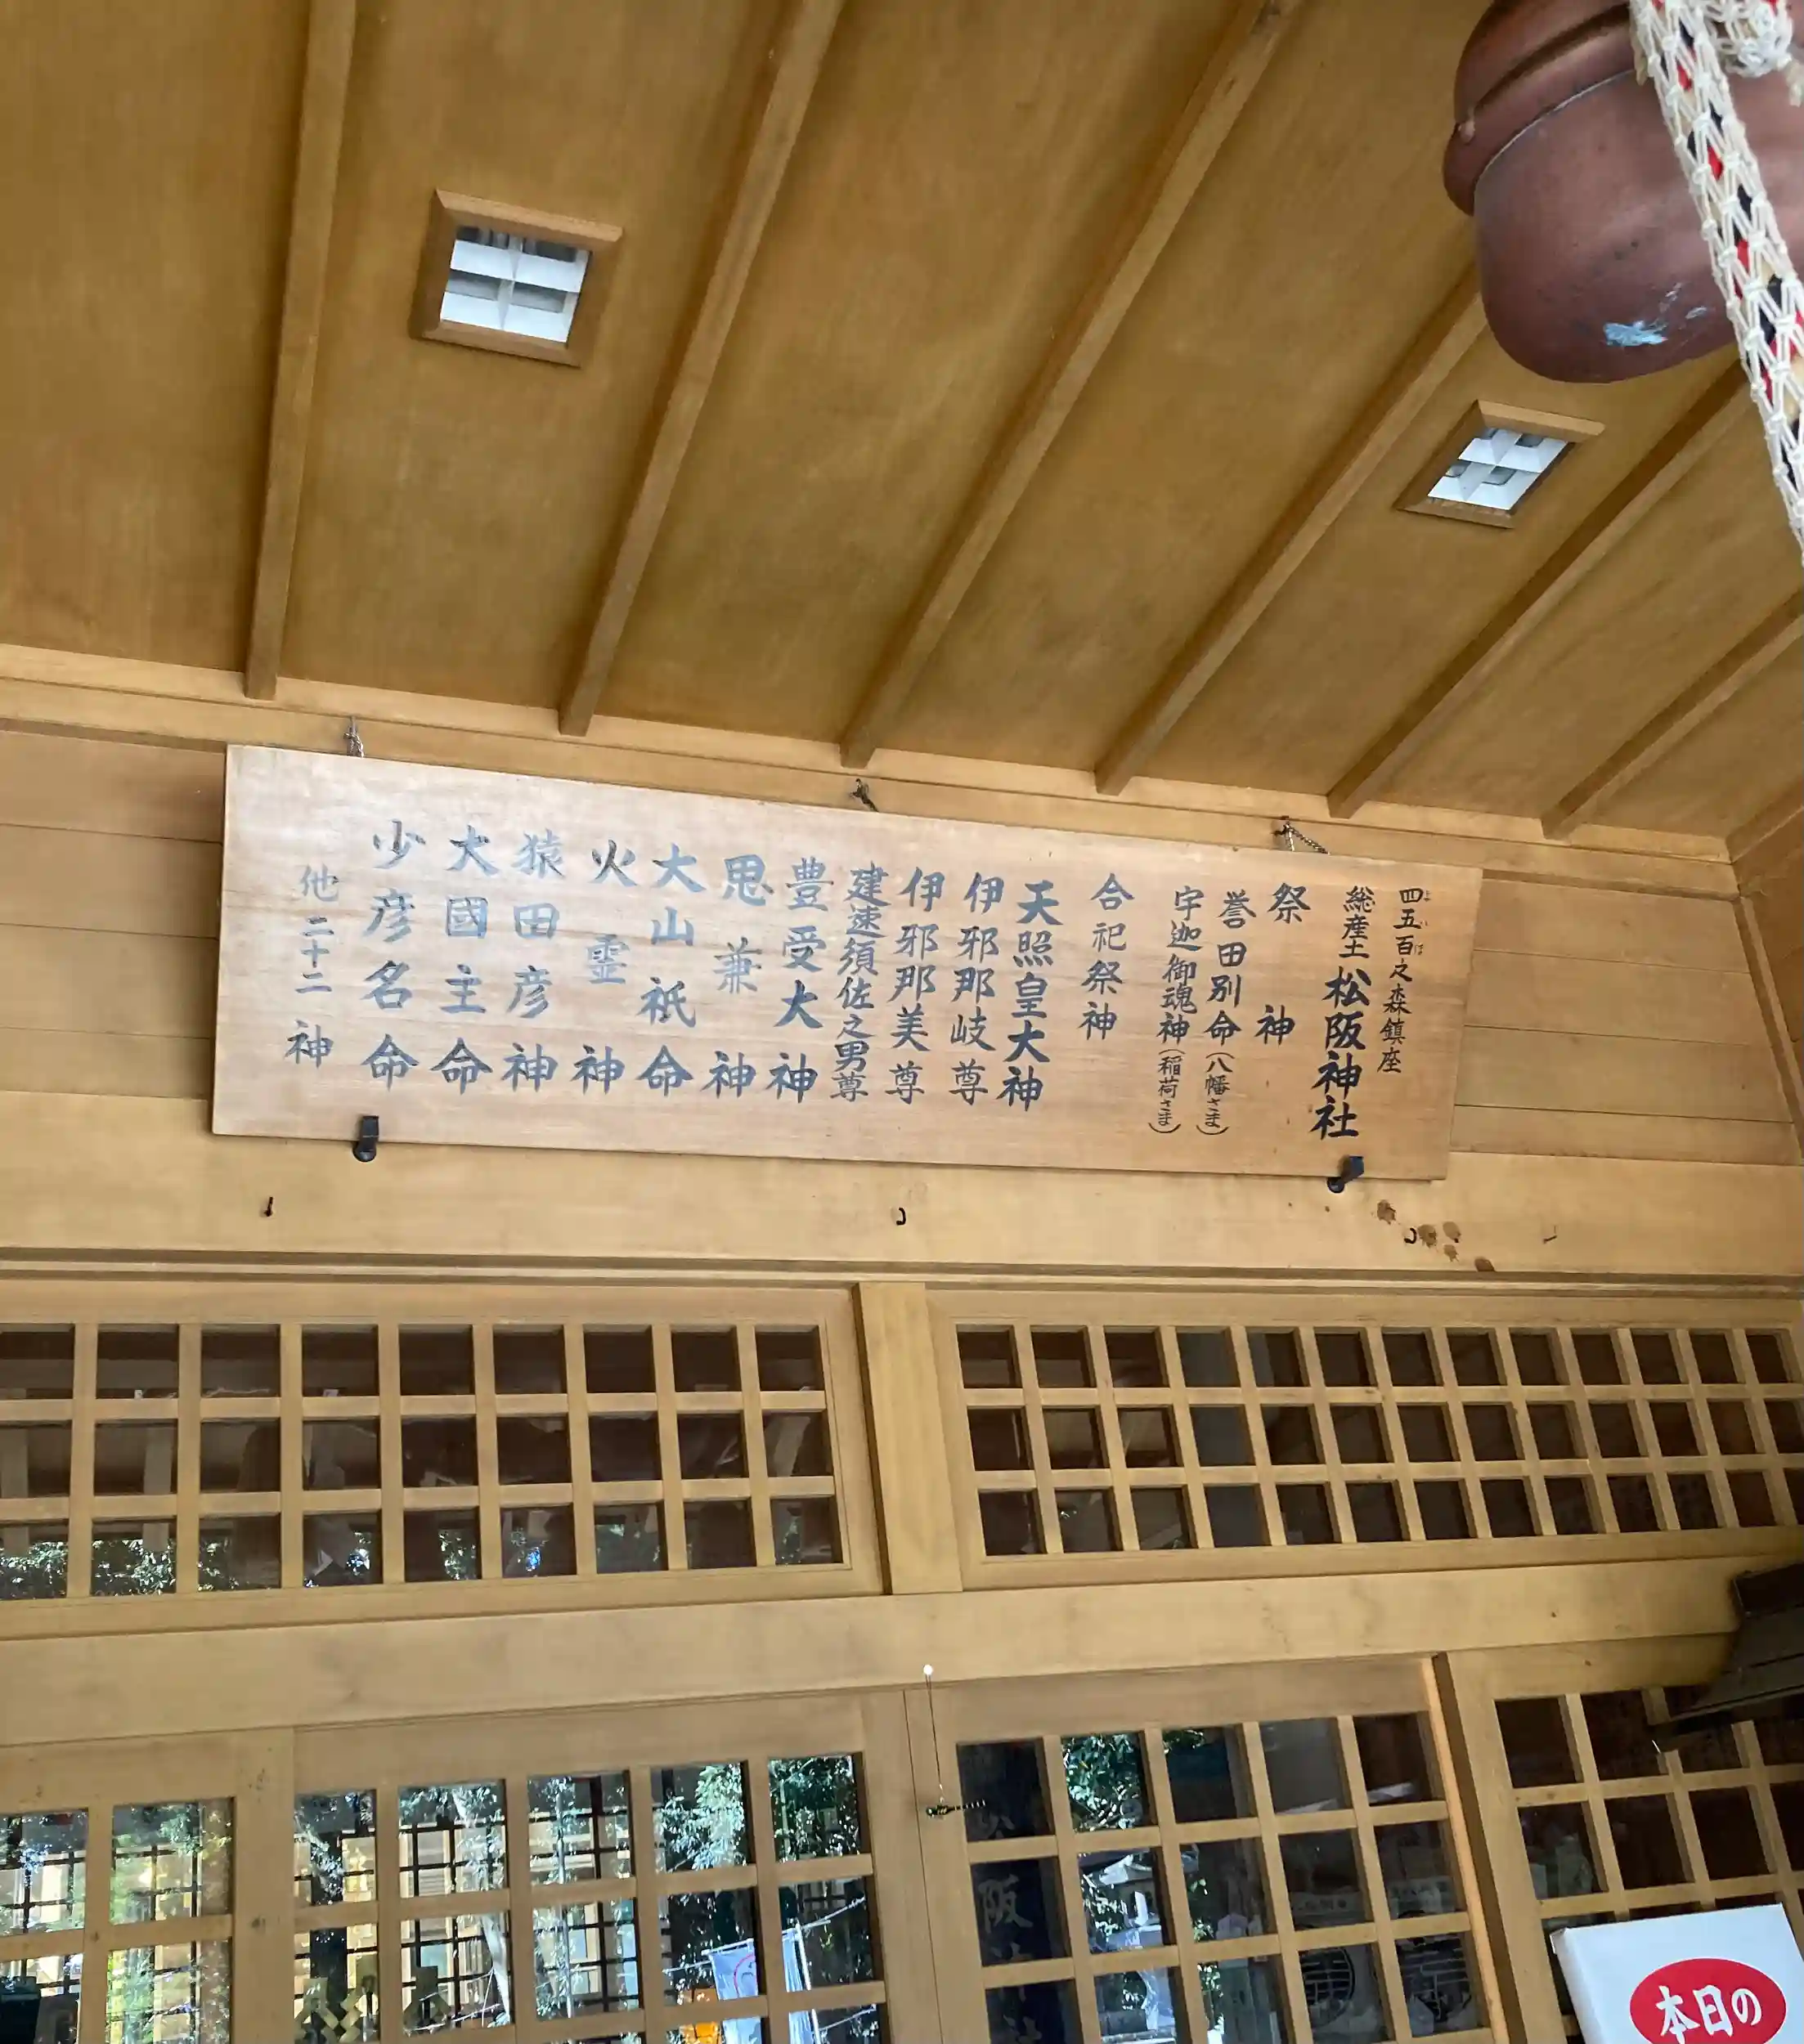 四五百之森鎮座
よいほ
総産土 松阪神社
祭神
誉田別命(八幡さま)
宇迦御魂神(稲荷さま)
合祀祭神
天照皇大神
伊邪那岐尊
伊邪那美尊
建速須佐之男尊
豊受大神
思兼神
大山祇命
火霊神
猿田彦神
大國主命
少彦名命
他二十二神
本日の